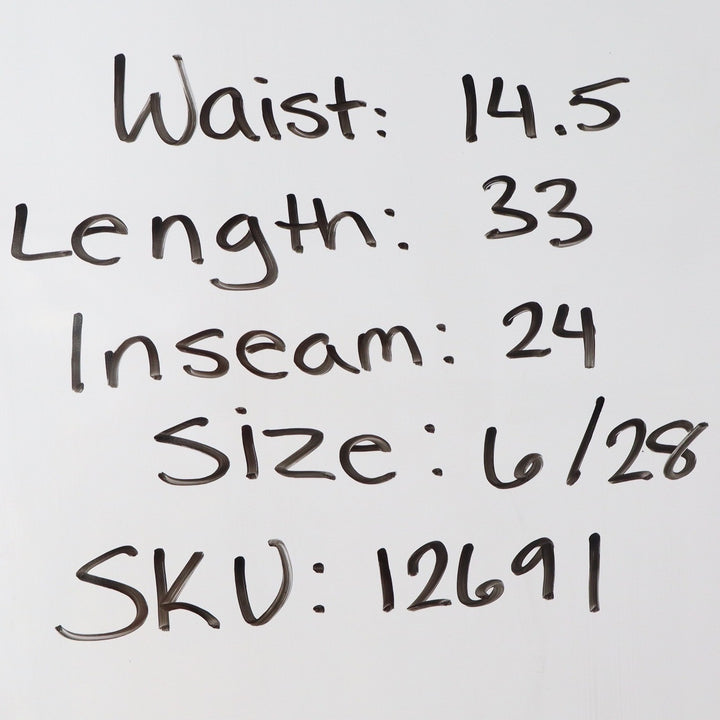 Waist: 14.5
Length: 33
Inseam: 24
Size: 6/28
SKU: 12691